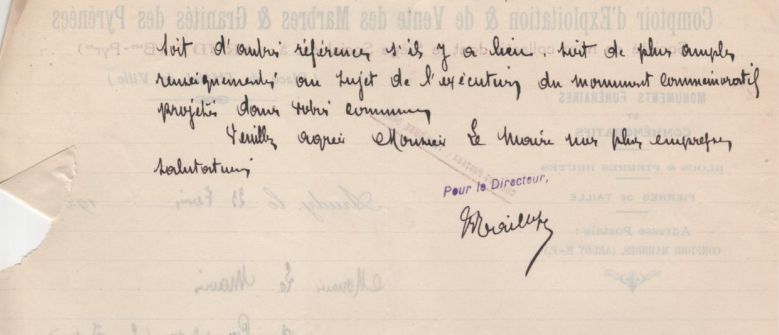 soit d'autres références s'il y a lieu, soit de plus amples
renseignements au sujet de l'exécution du monument commémoratif
projeté dans votre commune
Veuillez agréer Monsieur Le Maire nos plus empressées
salutations
Pour le Directeur,
Comptoir d'Exploitation & de Vente des Marbres & Granités des Pyrénées
MONUMENTS FUNÉRAIRES
ET
COMMÉMORATIFS
BLOCS & PIERRES BRUTES
PIERRES DE TAILLE
Adresse Postale :
COMPTOIR MARBRES, (ARUDY B.-P.)
Arudy, le 23
Monsieur Le Maire